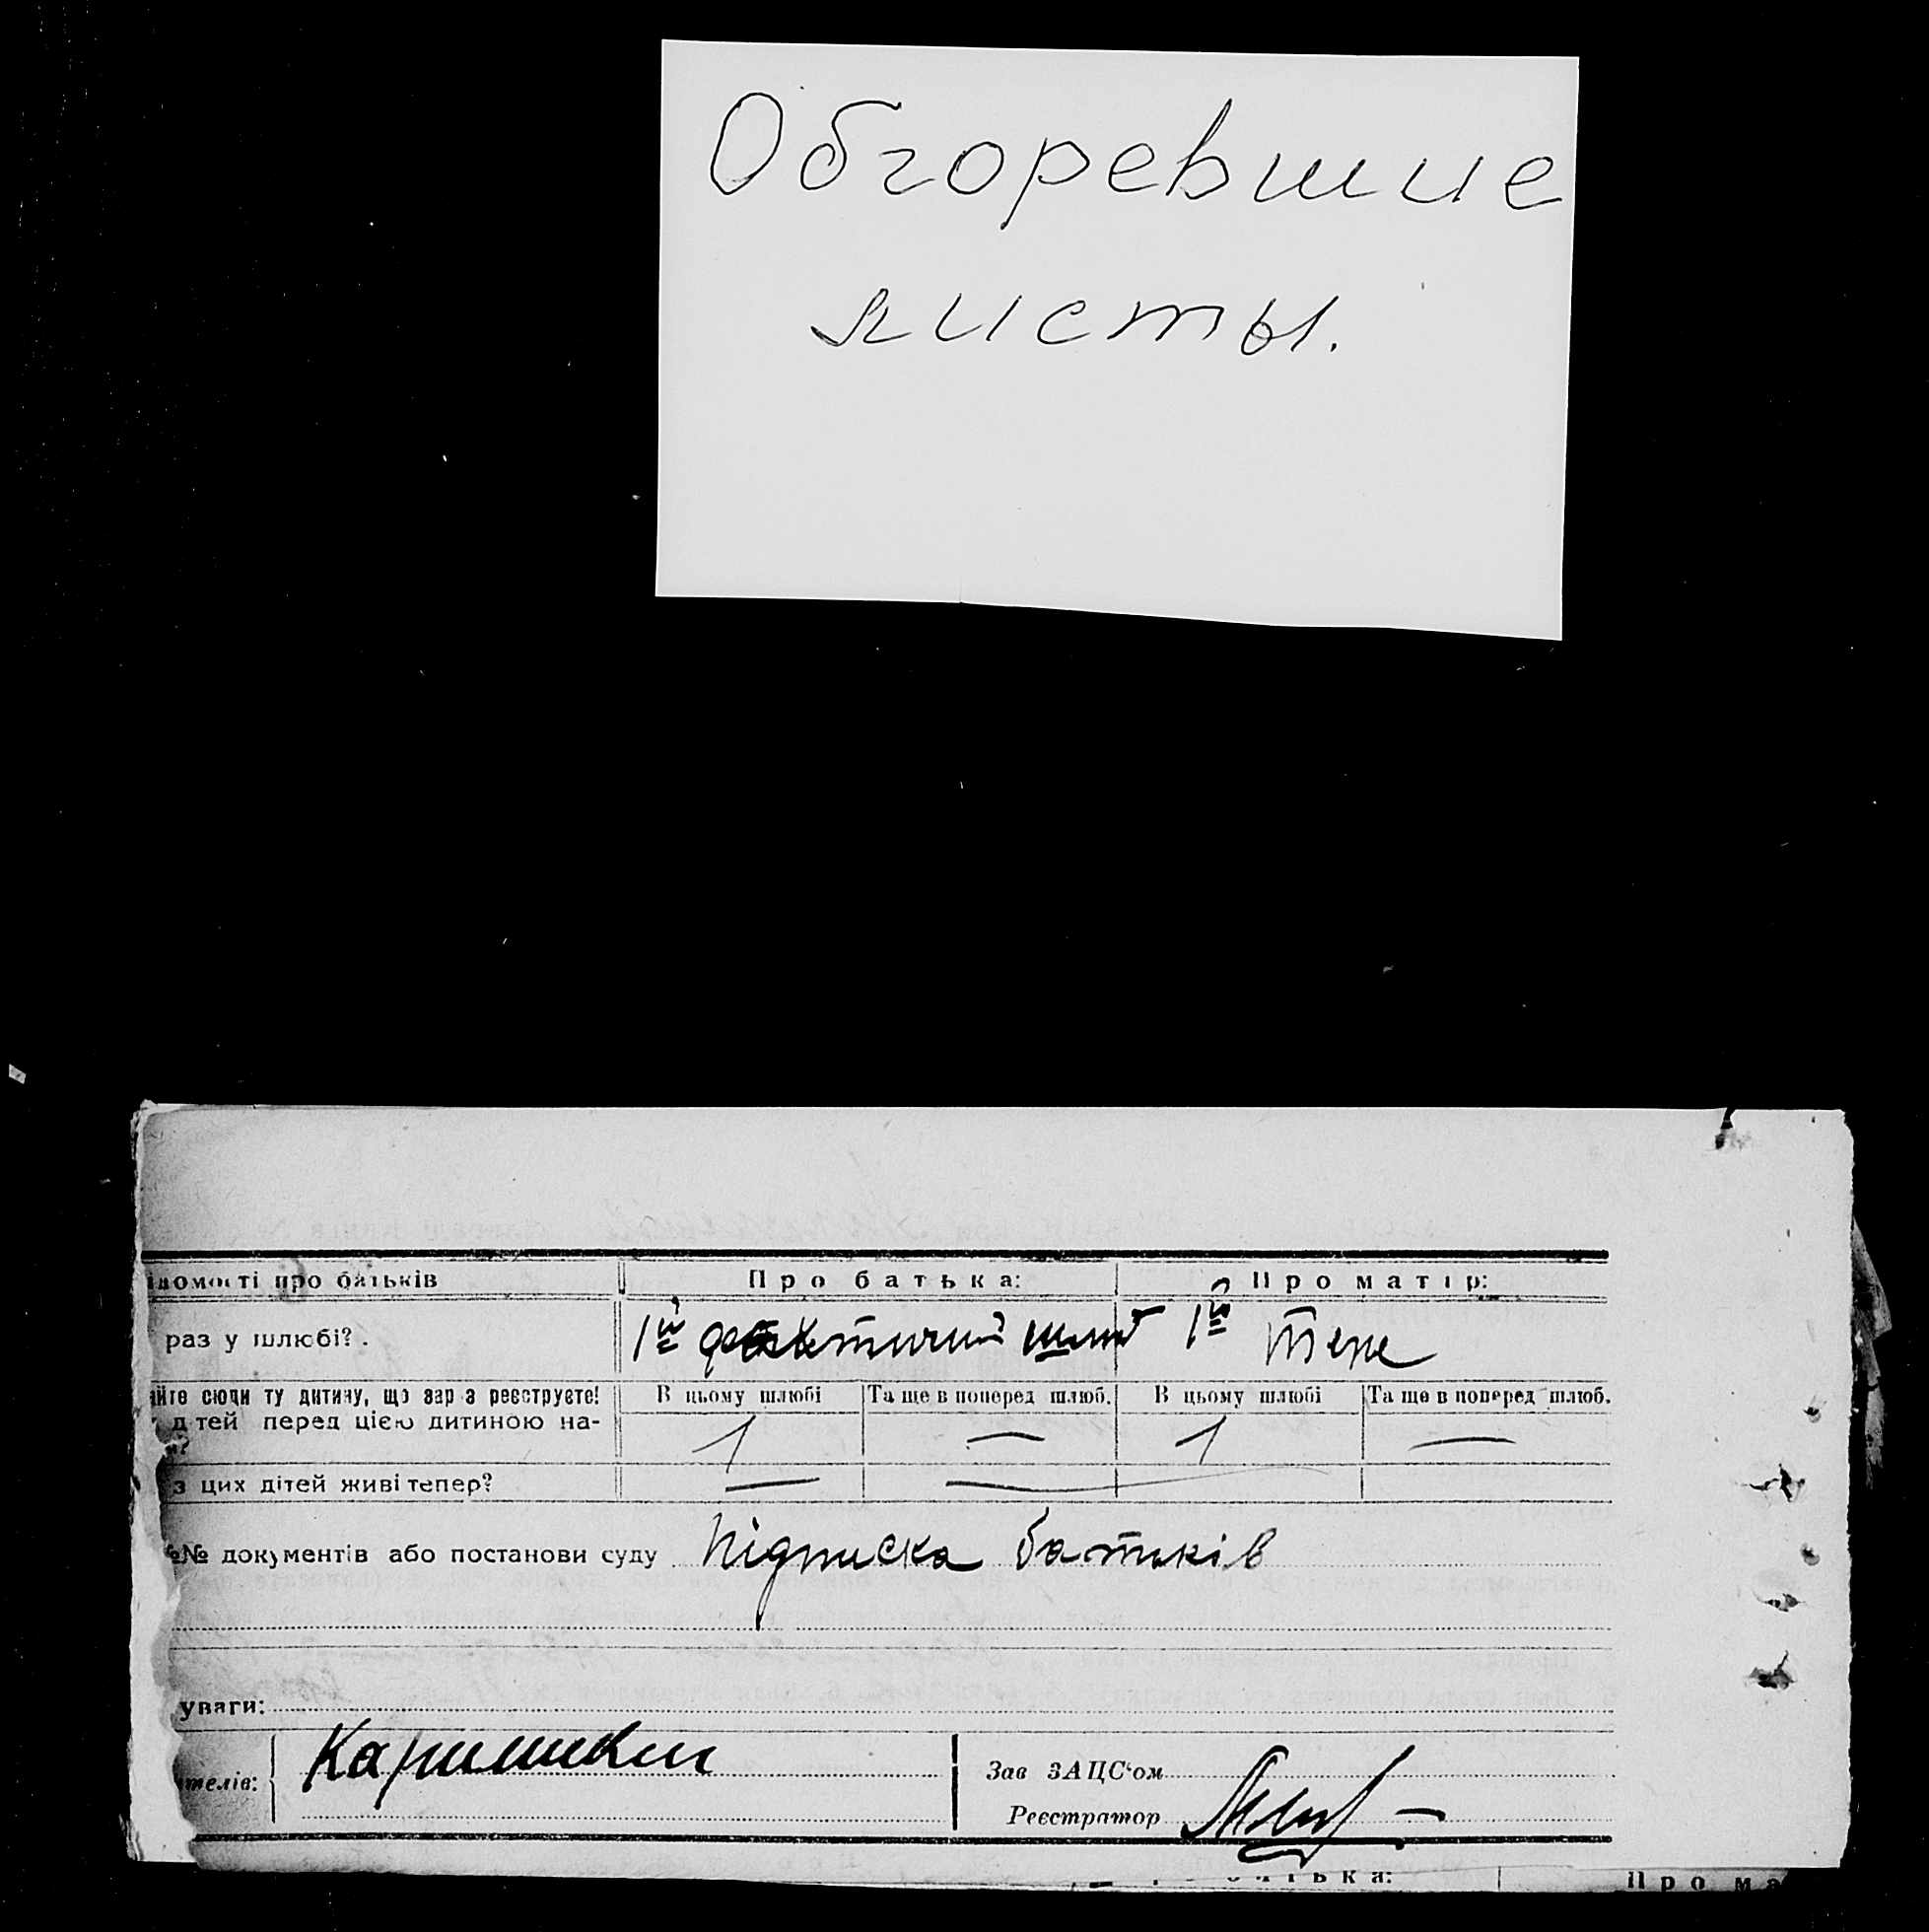 Обгоревшие
листы.
ідомості про батьків Про батька: Про матір:
раз у шлюбі? . 1й фактичний шлюб 1й теж
айте сюди ту дитину, що зараз реєструєте! В цьому шлюбі Та ще в поперед шлюб. В цьому шлюбі Та ще в поперед шлюб.
дітей перед цією дитиною на- 1 — 1 —
и?
з цих дітей живі тепер? — —
№№ документів або постанови суду Підписка батьків
уваги:
телів: Зав ЗАЦС‘ом
Реєстратор
батька: Про ма